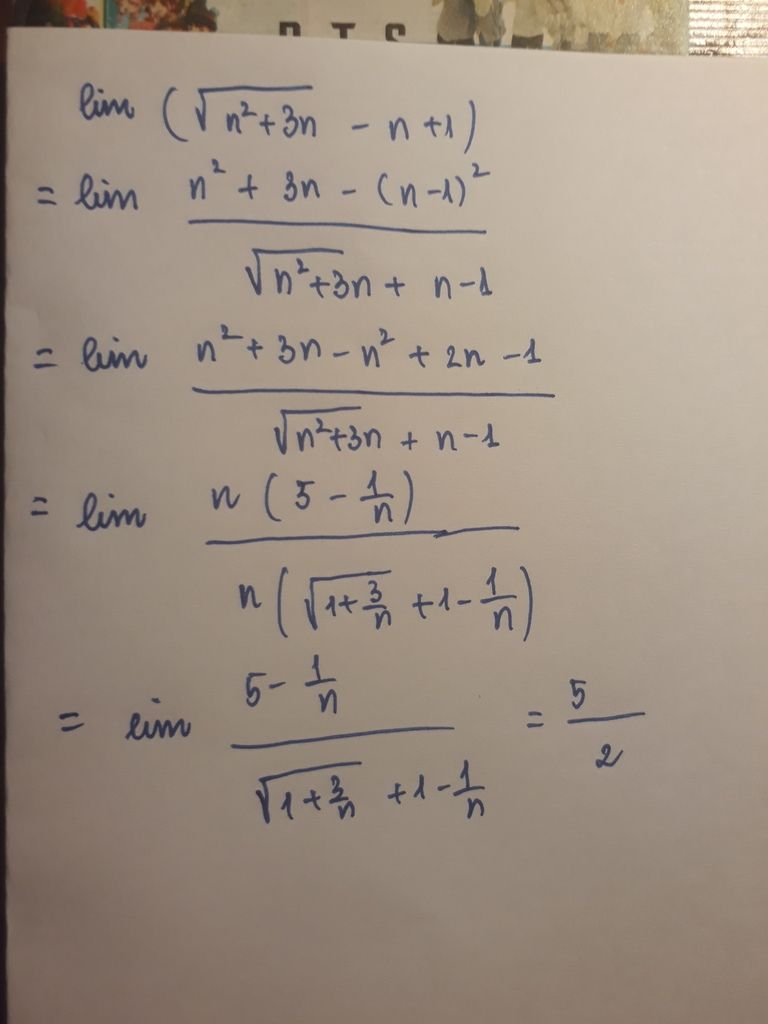 BTS
lim (√(n²+3n) - n +1)
= lim (n² + 3n - (n-1)²) / (√(n²+3n) + n-1)
= lim (n² + 3n - n² + 2n - 1) / (√(n²+3n) + n-1)
= lim (n (5 - 1/n)) / (n (√(1+3/n) +1- 1/n))
= lim (5 - 1/n) / (√(1+3/n) +1- 1/n) = 5/2